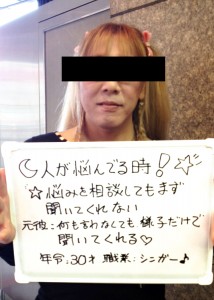 ☾人が悩んでる時!☆
☆悩みを相談してもまず
聞いてくれない
元彼:何も言わなしても 様子だけで
聞いてくれる♡
年令:30才 職業:シンガー♪